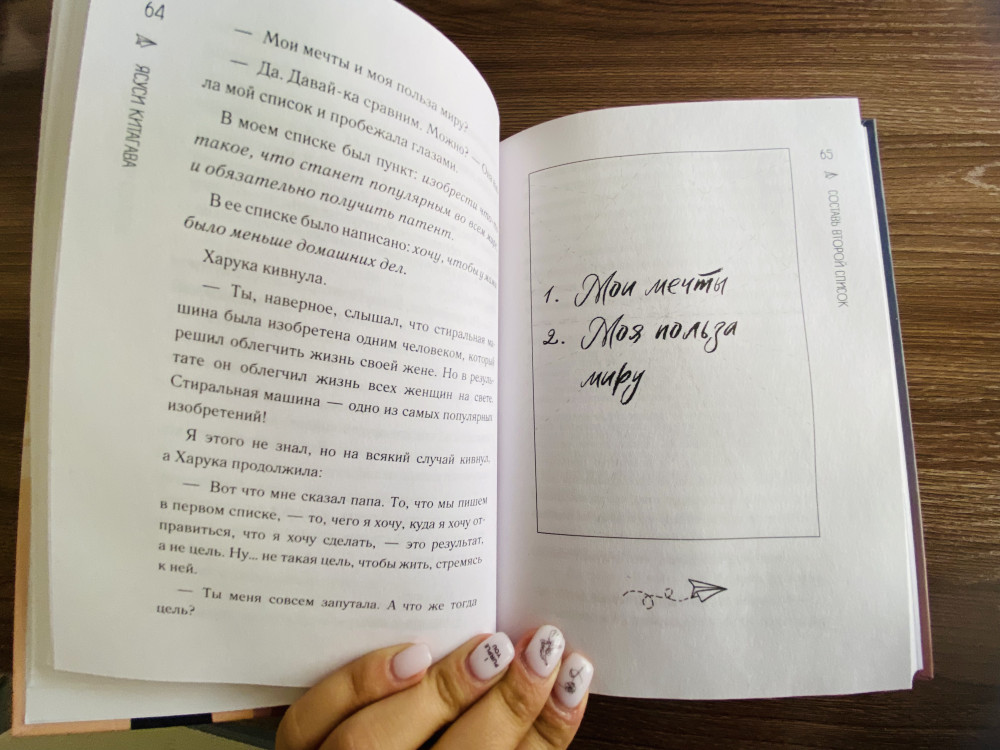 64
ЯСУСИ КИТАГАВА
— Мои мечты и моя польза миру?
— Да. Давай-ка сравним. Можно? —
ла мой список и пробежала глазами.
В моем списке был пункт: изобрести
такое, что станет популярным во всем
и обязательно получить патент.
В ее списке было написано: хочу, чтобы у
было меньше домашних дел.
Харука кивнула.
— Ты, наверное, слышал, что стиральная ма-
шина была изобретена одним человеком, который
решил облегчить жизнь своей жене. Но в резуль-
тате он облегчил жизнь всех женщин на свете.
Стиральная машина — одно из самых популярных
изобретений!
Я этого не знал, но на всякий случай кивнул,
а Харука продолжила:
— Вот что мне сказал папа. То, что мы пишем
в первом списке, — то, чего я хочу, куда я хочу от-
правиться, что я хочу сделать, — это результат,
а не цель. Ну... не такая цель, чтобы жить, стремясь
к ней.
— Ты меня совсем запутала. А что же тогда
цель?
СОСТАВЬ ВТОРОЙ СПИСОК
1. Мои мечты
2. Моя польза
миру
I PURPLE
YOU